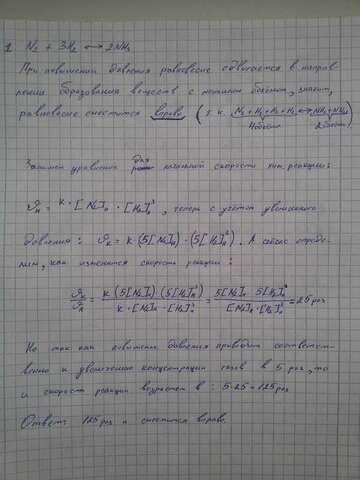 1. N₂ + 3H₂ ⟷ 2NH₃
При повышении давления равновесие сдвигается в направ
лении образования веществ с меньшим объёмом, значит,
равновесие сместится вправо (т.к. N₂+H₂+H₂+H₂⟷NH₃+NH₃)
4объёма 2объёма
Запишем уравнение для начальной скорости хим. реакции:
ϑн = k·[N₂]н · [H₂]н³, теперь с учётом увеличения
давления: ϑк = k·(5[N₂]н)·(5[H₂]н³). А сейчас опреде-
лим, как изменится скорость реакции:
ϑк/ϑн = k(5[N₂]н)(5[H₂]н³)/k·[N₂]н·[H₂]н³ = 5[N₂]н 5[H₂]н³/[N₂]н·[H₂]н³ = 25 раз
Но так как повышение давления приводит соответст-
венно к увеличению концентрации газов в 5 раз, то
и скорость реакции возрастет в: 5·25=125раз
Ответ: 125 раз и сместится вправо.